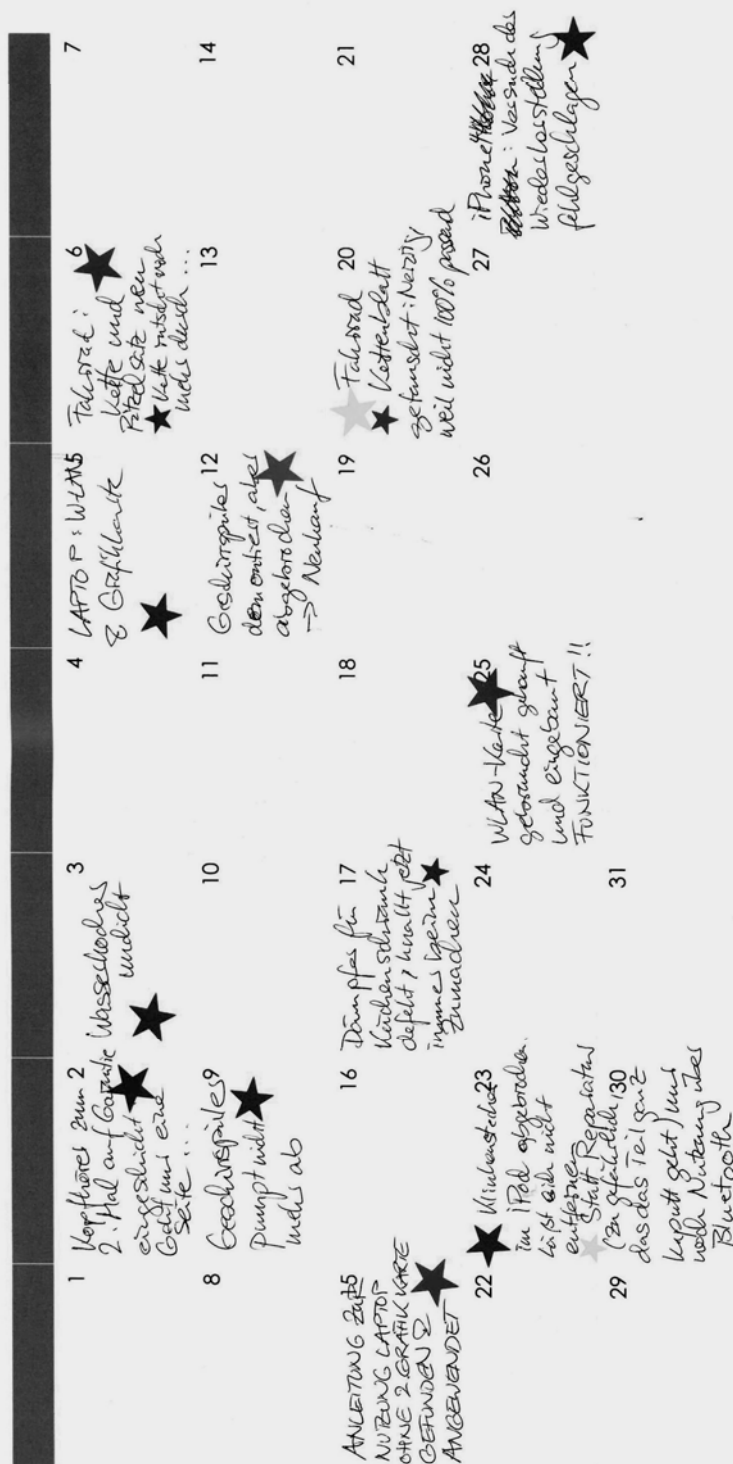 1
Kopfhörer zum 2
2. Mal auf Garantie
eingeschickt
Geht nur eine
Seite ...
3
Wasserkocher
undicht
4
LAPTOP: WLAN 5
& Grafikkarte
Fahrrad: 6
Kette und
Ritzelsatz neu
Kette rutscht noch
mehr durch ...
7
8
Geschirrspüler 9
Pumpt nicht
mehr ab
10
11
Geschirrspüler 12
demontiert, aber
abgebrochen
-> Neukauf
13
14
ANLEITUNG ZUR 15
NUTZUNG LAPTOP
OHNE 2. GRAFIKKARTE
GEFUNDEN &
ANGEWENDET
16
Dämpfer für 17
Küchenschrank
defekt, knallt jetzt
immer beim
zumachen
18
19
Fahrrad 20
Kettenblatt
getauscht: Nervig,
weil nicht 100% passend
21
22
Klinkenstecker 23
im iPod abgebrochen.
läßt sich nicht
entfernen
Statt Reparatur
(zu gefährlich, 30
das das Teil ganz
kaputt geht) nur
noch Nutzung über
Bluetooth
24
WLAN-Karte 25
gebraucht gekauft
und eingebaut
FUNKTIONIERT!!
26
27
iPhone 28
: Versuch der
Wiederherstellung
fehlgeschlagen
29
31